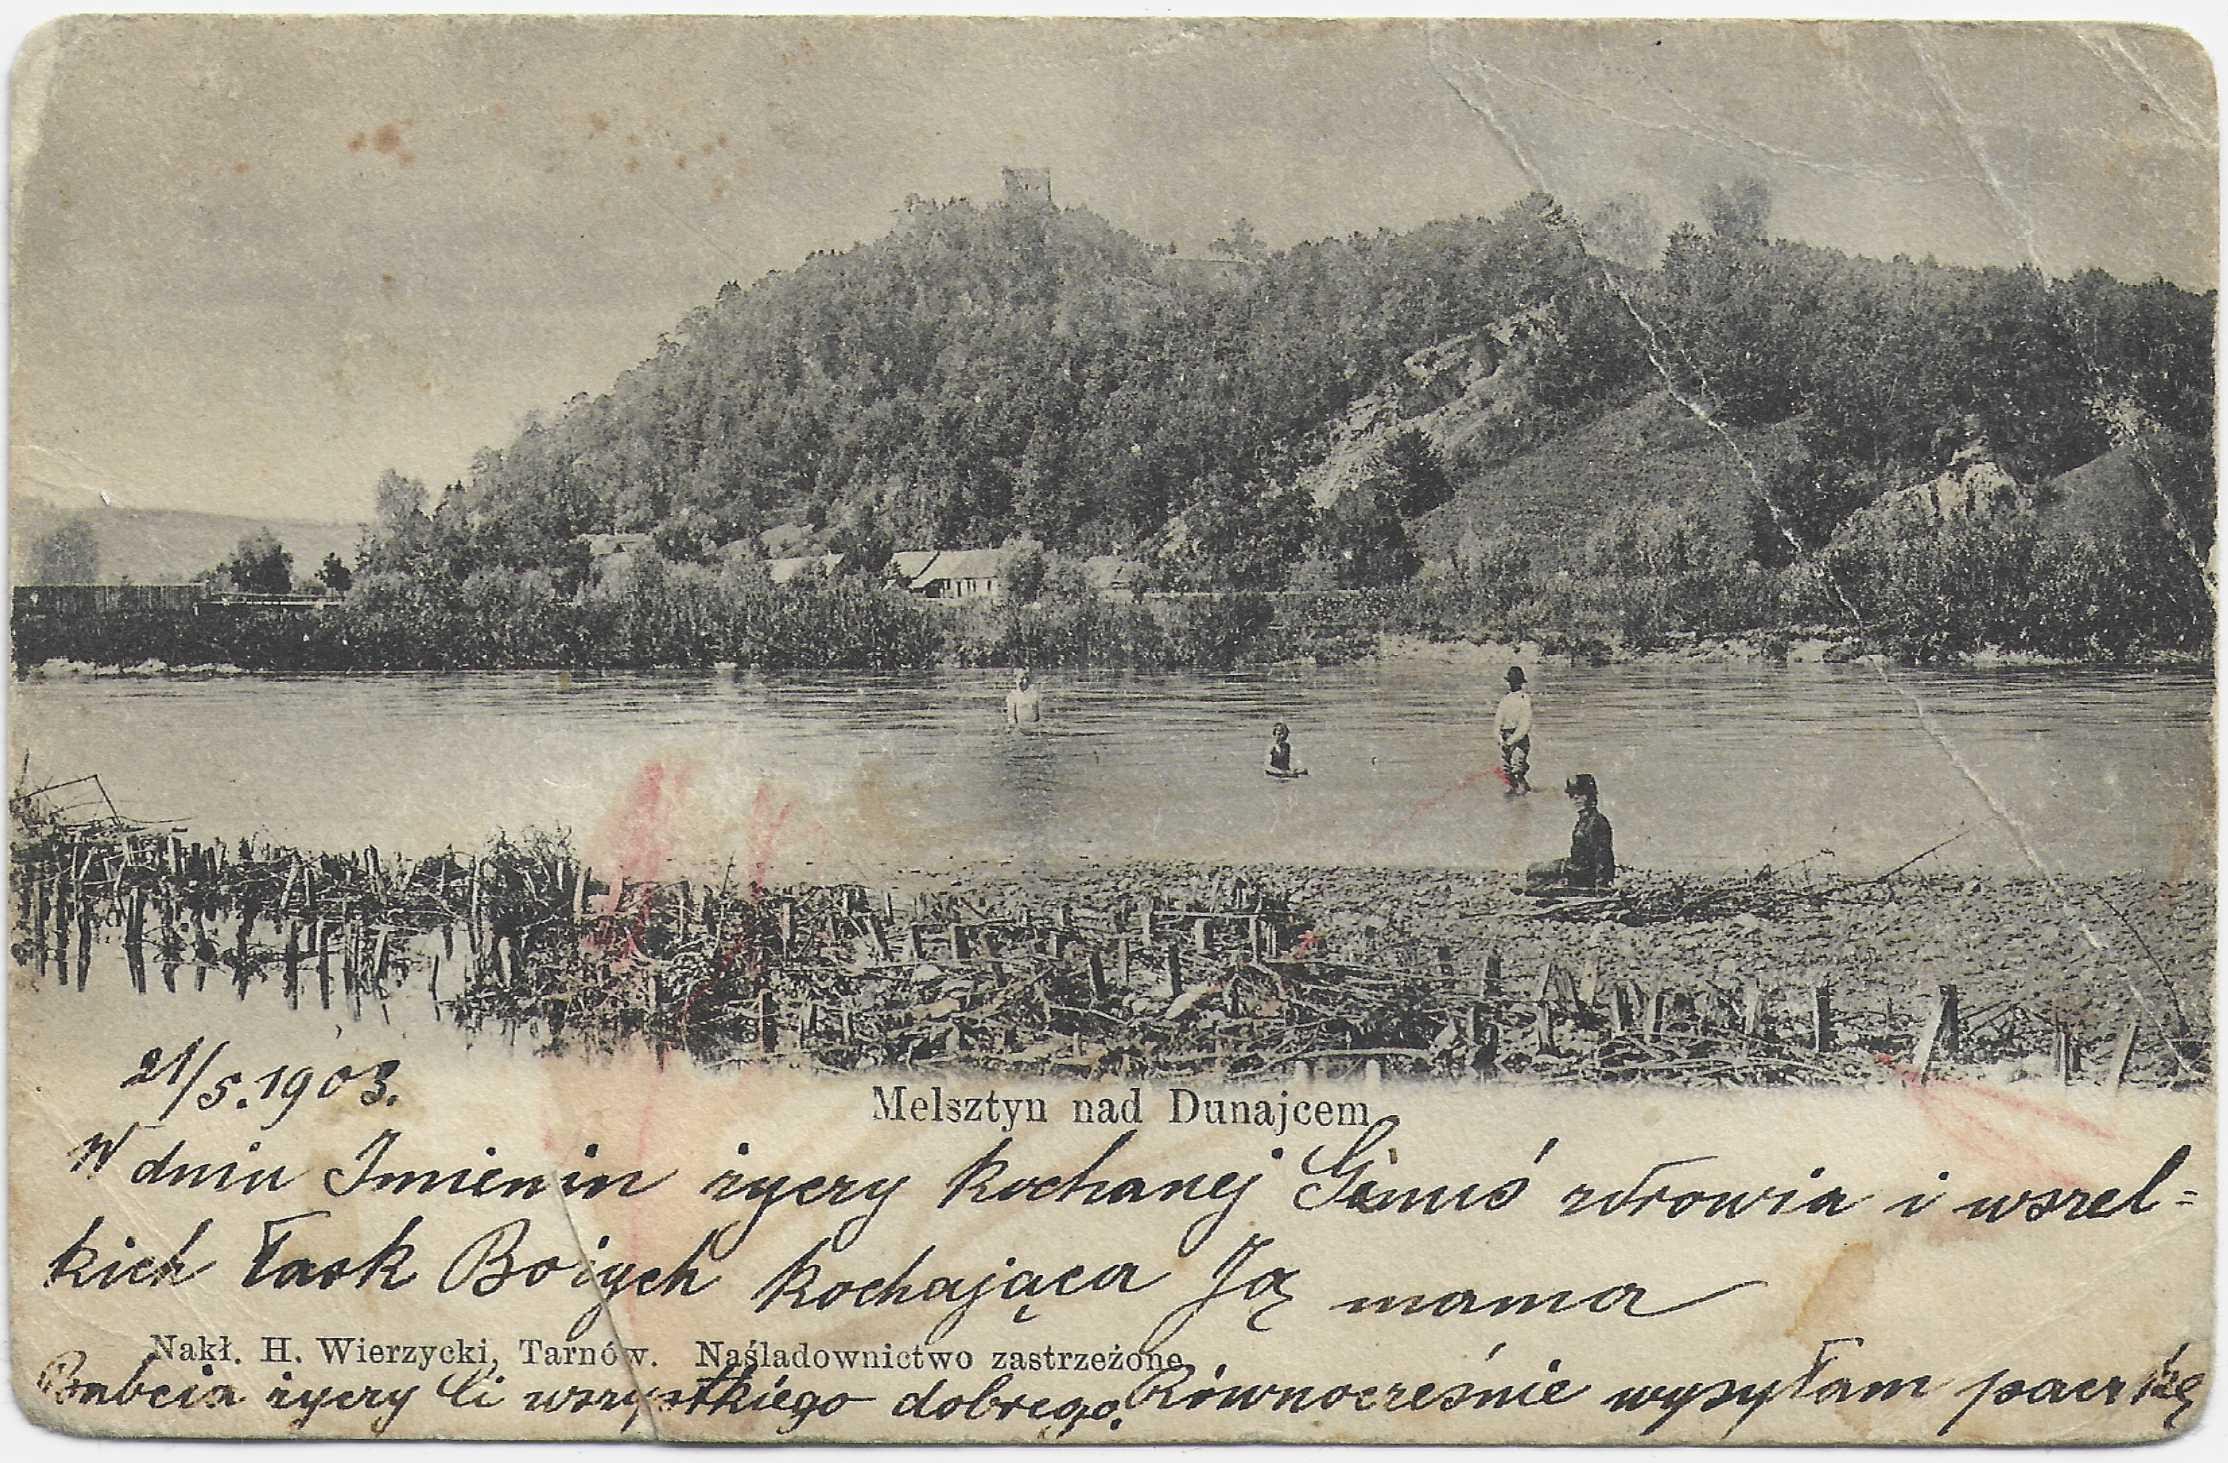 21/5.1903.
Melsztyn nad Dunajcem
W dniu Imienin życzy kochanej Gieniuś zdrowia i wszel=
kich łask Bożych kochająca Ją mama
Nakł. H. Wierzycki, Tarnów. Naśladownictwo zastrzeżone
Babcia życzy Ci wszystkiego dobrego. Równocześnie wysyłam paczkę